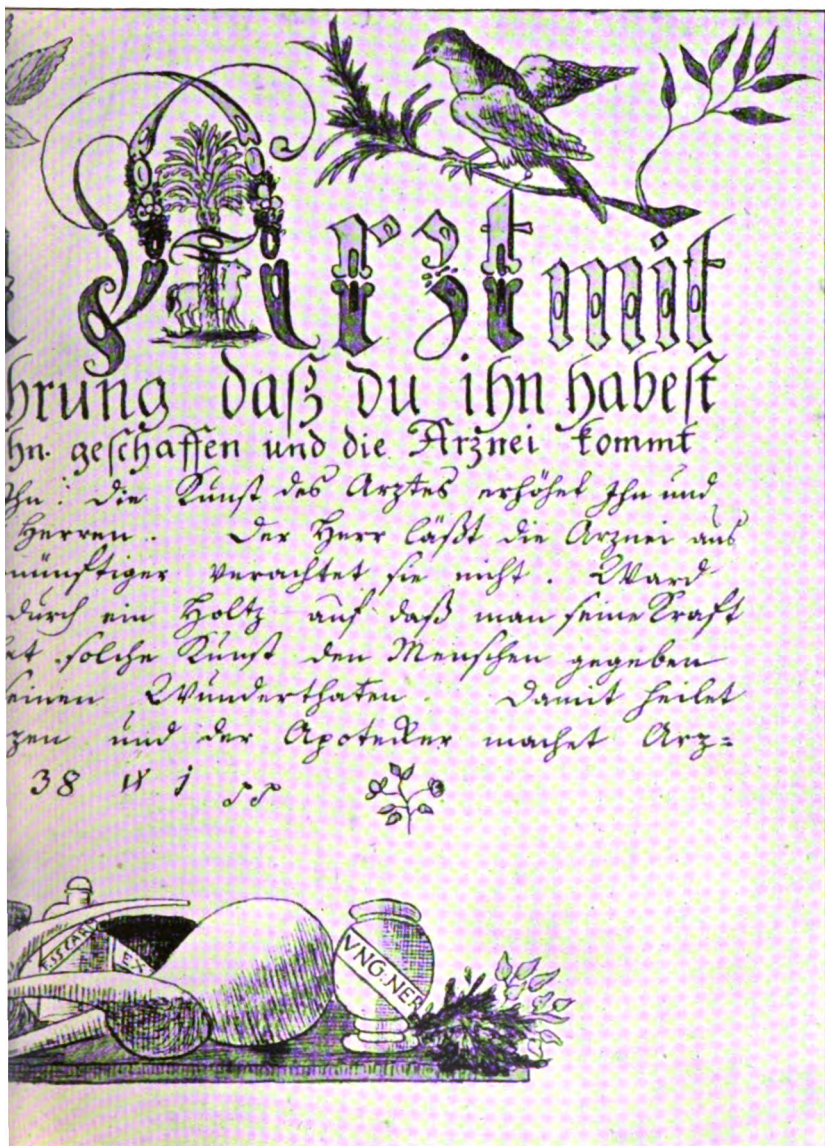 Arzt mit
hrung daß du ihn habest
hn. geschaffen und die Arznei kommt
Ihn: die Kunst des Arztes erhöhet Ihn und
Herren. Der Herr läßt die Arznei aus
nünftiger verachtet sie nicht. Ward
durch ein Holtz auf daß man seine Kraft
at solche Kunst den Menschen gegeben
einen Wunderthaten. Damit heilet
zen und der Apoteker machet Arz=
38
ESS CAR
EX
VNG.NER